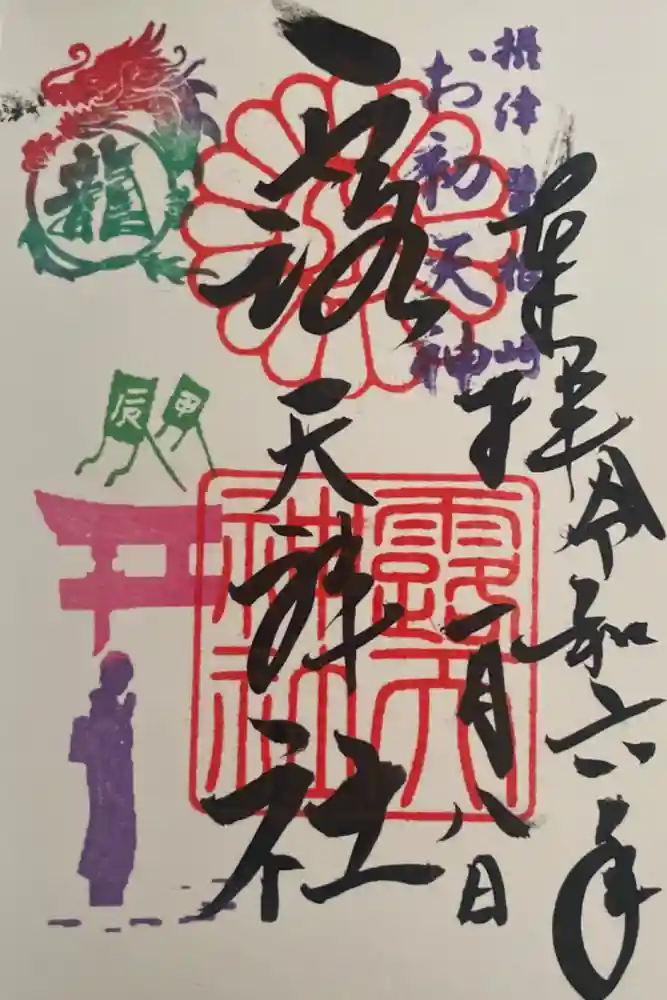 奉拝 令和六年
一月八日
摂津 曽根崎
お初天神
露天神社
露天
神社
龍
甲
辰